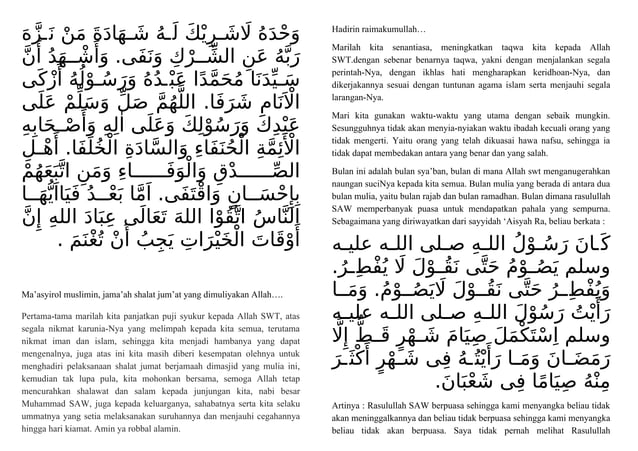 وَحْدَهُ لَاشَرِيْكَ لَهُ شَهَادَةَ مَنْ نَزَّهَ
رَبَّهُ عَنِ الشِّرْكِ وَنَفَى. وَأَشْهَدُ أَنَّ
سَيِّدَنَا مُحَمَّدًا عَبْدُهُ وَرَسُوْلُهُ أَزْكَى
الْاَنَامِ شَرَفَا. اللَّهُمَّ صَلِّ وَسَلِّمْ عَلَى
عَبْدِكَ وَرَسُوْلِكَ وَعَلَى اَلِهِ وَأَصْحَابِهِ
الْأَئِمَّةِ الْحُنَفَاءِ وَالسَّادَةِ الْخُلَفَا. أَهْلِ
الصِّدْقِ وَالْوَفَاءِ وَمَنِ اتَّبَعَهُمْ
بِاِحْسَانٍ وَاقْتَفَى. اَمَّا بَعْدُ فَيَاأَيُّهَا
النَّاسُ اتَّقُوْا اللهَ تَعَالَى عِبَادَ اللهِ إِنَّ
أَوْقَاتَ الْخَيْرَاتِ يَجِبُ أَنْ تُغْنَمَ .
Ma'asyirol muslimin, jama'ah shalat jum'at yang dimuliyakan Allah….
Pertama-tama marilah kita panjatkan puji syukur kepada Allah SWT, atas
segala nikmat karunia-Nya yang melimpah kepada kita semua, terutama
nikmat iman dan islam, sehingga kita menjadi hambanya yang dapat
mengenalnya, juga atas ini kita masih diberi kesempatan olehnya untuk
menghadiri pelaksanaan shalat jumat berjamaah dimasjid yang mulia ini,
kemudian tak lupa pula, kita mohonkan bersama, semoga Allah tetap
mencurahkan shalawat dan salam kepada junjungan kita, nabi besar
Muhammad SAW, juga kepada keluarganya, sahabatnya serta kita selaku
ummatnya yang setia melaksanakan suruhannya dan menjauhi cegahannya
hingga hari kiamat. Amin ya robbal alamin.
Hadirin raimakumullah…
Marilah kita senantiasa, meningkatkan taqwa kita kepada Allah
SWT.dengan sebenar benarnya taqwa, yakni dengan menjalankan segala
perintah-Nya, dengan ikhlas hati mengharapkan keridhoan-Nya, dan
dikerjakannya sesuai dengan tuntunan agama islam serta menjauhi segala
larangan-Nya.
Mari kita gunakan waktu-waktu yang utama dengan sebaik mungkin.
Sesungguhnya tidak akan menyia-nyiakan waktu ibadah kecuali orang yang
tidak mengerti. Yaitu orang yang telah dikuasai hawa nafsu, sehingga ia
tidak dapat membedakan antara yang benar dan yang salah.
Bulan ini adalah bulan sya'ban, bulan di mana Allah swt menganugerahkan
naungan suciNya kepada kita semua. Bulan mulia yang berada di antara dua
bulan mulia, yaitu bulan rajab dan bulan ramadhan. Bulan dimana rasulullah
SAW memperbanyak puasa untuk mendapatkan pahala yang sempurna.
Sebagaimana yang diriwayatkan dari sayyidah 'Aisyah Ra, beliau berkata :
كَانَ رَسُوْلُ اللهِ صلى الله عليه
وسلم يَصُوْمُ حَتَّى نَقُوْلَ لَا يُفْطِرُ.
وَيُفْطِرُ حَتَّى نَقُوْلَ لَايَصُوْمُ. وَمَا
رَأَيْتُ رَسُوْلَ اللهِ صلى الله عليه
وسلم اِسْتَكْمَلَ صِيَامَ شَهْرٍ قَطُّ إِلَّا
رَمَضَانَ وَمَا رَأَيْتُهُ فِى شَهْرٍ أَكْثَرَ
مِنْهُ صِيَامًا فِى شَعْبَانَ.
Artinya : Rasulullah SAW berpuasa sehingga kami menyangka beliau tidak
akan meninggalkannya dan beliau tidak berpuasa sehingga kami menyangka
beliau tidak akan berpuasa. Saya tidak pernah melihat Rasulullah